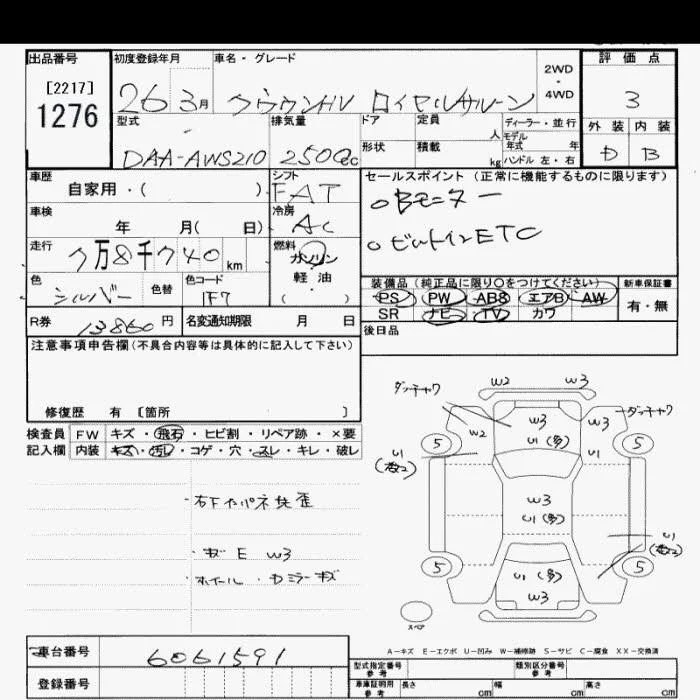 出品番号 初度登録年月 車名・グレード 評価点
[2217]
1276
26 3月 クラウンHV ロイヤルサルーン 2WD・4WD 3
型式 排気量 ドア 定員 人 ディーラー・並行 外装 内装
モデル年式 年
DAA-AWS210 2500cc 形状 積載 kg ハンドル 左・右 D B
車歴 シフト セールスポイント (正常に機能するものに限ります)
自家用・( ) FAT
○Bモニター
車検 冷房
年 月( 日) AC
○ビルトインETC
走行 燃料
7万8千740km ガソリン
軽油
( )
色 色替 色コード 装備品 (純正品に限り○をつけてください) 新車保証書
シルバー 1F7 PS PW ABS エアB AW 有・無
SR ナビ TV カワ
R券 13860円 名変通知期限 月 日 後日品
注意事項申告欄(不具合内容等は具体的に記入して下さい)
修復歴 有 〔箇所 〕
検査員 FW キズ・飛石・ヒビ割・リペア跡・×要
記入欄 内装 キズ・汚レ・コゲ・穴・スレ・キレ・破レ
・キズ E W3
W2 W3
W3 W3
W2 U1(多) U1
5 5
U1 W3
U1(多)
U1
5 5
U1(多)
W3
スペア
A-キズ E-エクボ U-凹み W-補修跡 S-サビ C-腐食 XX-交換済
車台番号 6061591
登録番号
型式指定番号 参考 類別区分番号 参考
車庫証明用 参考 長さ cm 幅 cm 高さ cm